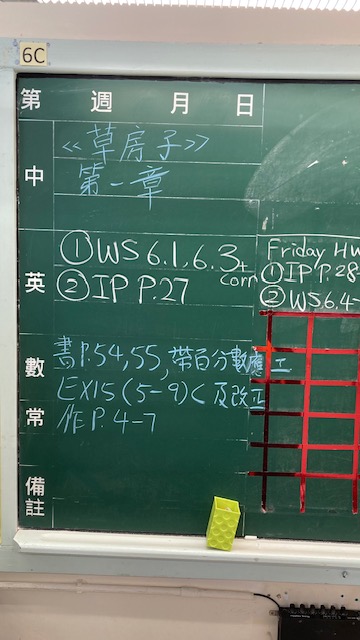 6C
第 週 月 日
中
<<草房子>>
第一章
英
①WS 6.1, 6.3 + corr
②IP P.27
Friday HW
①IP P.28
②WS 6.4
數
書P.54,55, 帶百分數應工
EX15(5-9)< 及改正
常
作P. 4-7
備註